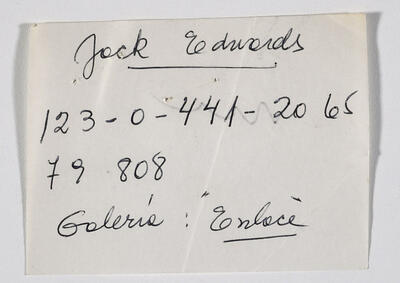 Jack Edwards
123-0-441-20 65
79 808
Galería : "Enlace